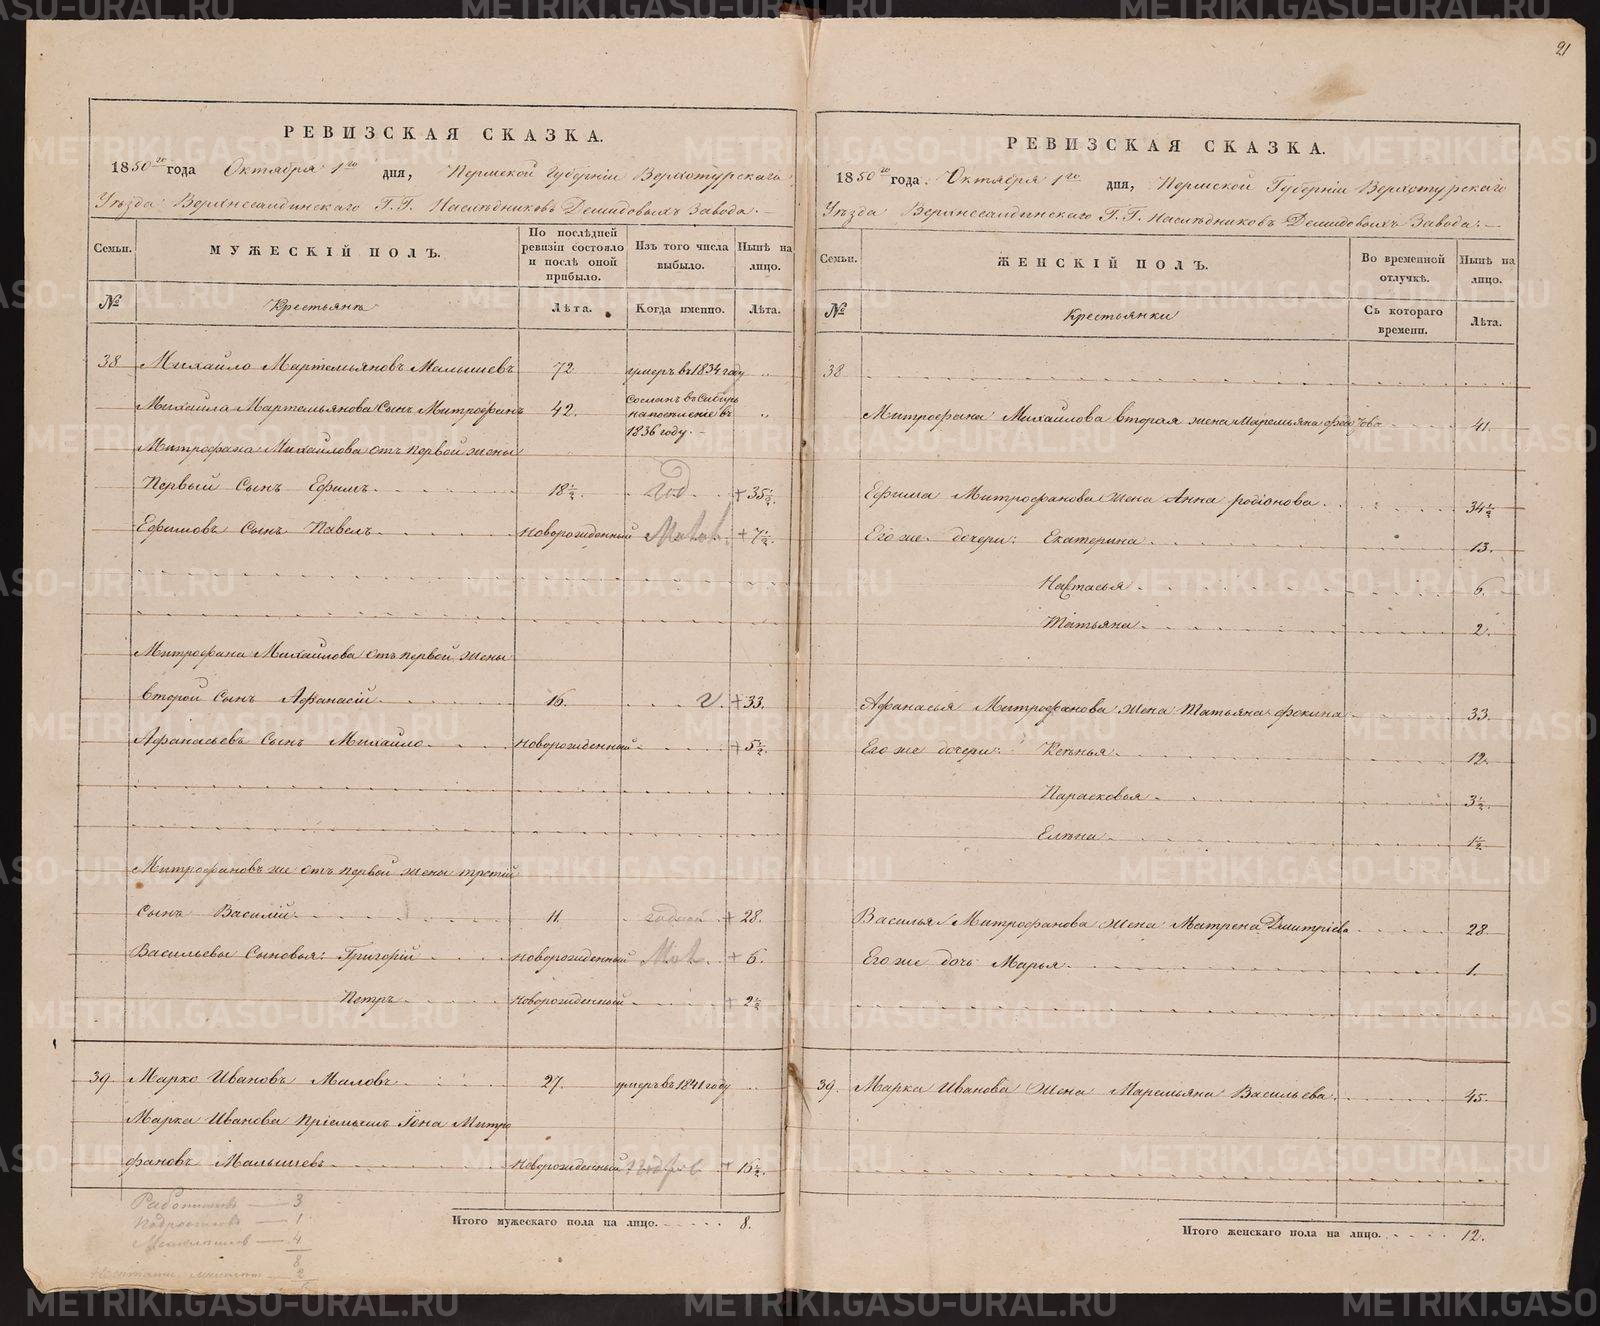 21
РЕВИЗСКАЯ СКАЗКА.
1850го года Октября 1го дня, Пермской Губерніи Верхотурскаго
Уѣзда Верхнесалдинскаго Г.Г. Наслѣдниковъ Демидовыхъ Завода.
Семьи.
МУЖЕСКІЙ ПОЛЪ.
По послѣдней ревизіи состояло и послѣ оной прибыло.
Изъ того числа выбыло.
Нынѣ на лицо.
№
Крестьянъ
Лѣта.
Когда именно.
Лѣта.
38 Михайло Мартемьяновъ Малышевъ 72 умеръ въ 1834 году
Михайла Мартемьянова Сынъ Митрофанъ 42. Сосланъ въ Сибирь
на поселеніе въ
1836 году.
Митрофана Михайлова отъ первой жены
Первый Сынъ Ефимъ 18½ год + 35½.
Ефимовъ Сынъ Павелъ новорожденный + 7½.
Митрофана Михайлова отъ первой жены
второй Сынъ Афанасій 16. + 33.
Афанасьевъ Сынъ Михайло новорожденный + 5½.
Митрофановъ же отъ первой жены третій
Сынъ Василій 11. годной + 28.
Васильевы Сыновья: Григорій новорожденный + 6.
Петръ новорожденный + 2½.
39. Марко Ивановъ Маловъ 27. умеръ въ 1841 году
Марка Иванова Пріемышъ Іона Митро
фановъ Малышевъ новорожденный + 16½.
Итого мужескаго пола на лицо. 8.
Работников — 3
Подростков — 1
Малолетков — 4
8
РЕВИЗСКАЯ СКАЗКА.
1850го года. Октября 1го дня, Пермской Губерніи Верхотурскаго
Уѣзда Верхнесалдинскаго Г.Г. Наслѣдниковъ Демидовыхъ Завода.
Семьи.
ЖЕНСКІЙ ПОЛЪ.
Во временной отлучкѣ.
Нынѣ на лицо.
№
Крестьянки
Съ котораго времени.
Лѣта.
38
Митрофана Михайлова вторая жена Маремьяна 41.
Ефима Митрофанова жена Анна родіонова 34½
Его же дочери: Екатерина 13.
Настасья 6.
Татьяна 2.
Афанасья Митрофанова жена Татьяна фокина 33.
Его же дочери: 12.
Парасковья 3½.
Елѣна 1½
Василья Митрофанова жена Матрена Дмитріева 28.
Его же дочь Марья 1.
39. Марка Иванова Жена Маремьяна Васильева 45.
Итого женскаго пола на лицо. 12.
METRIKI.GASO-URAL.RU